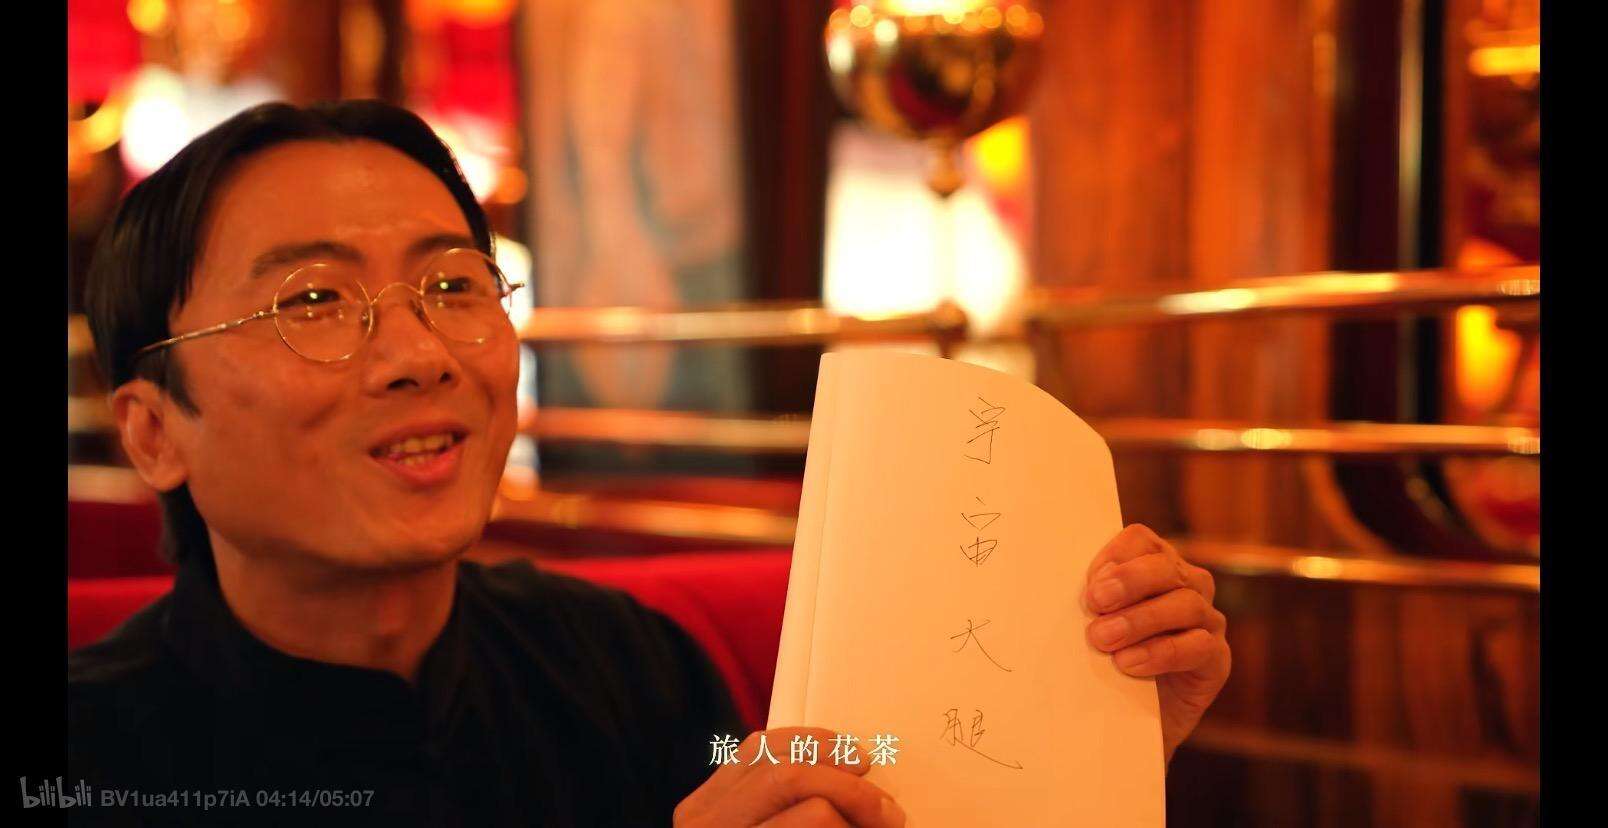 宇宙大腿
旅人的花茶
bilibili BV1ua411p7iA 04:14/05:07